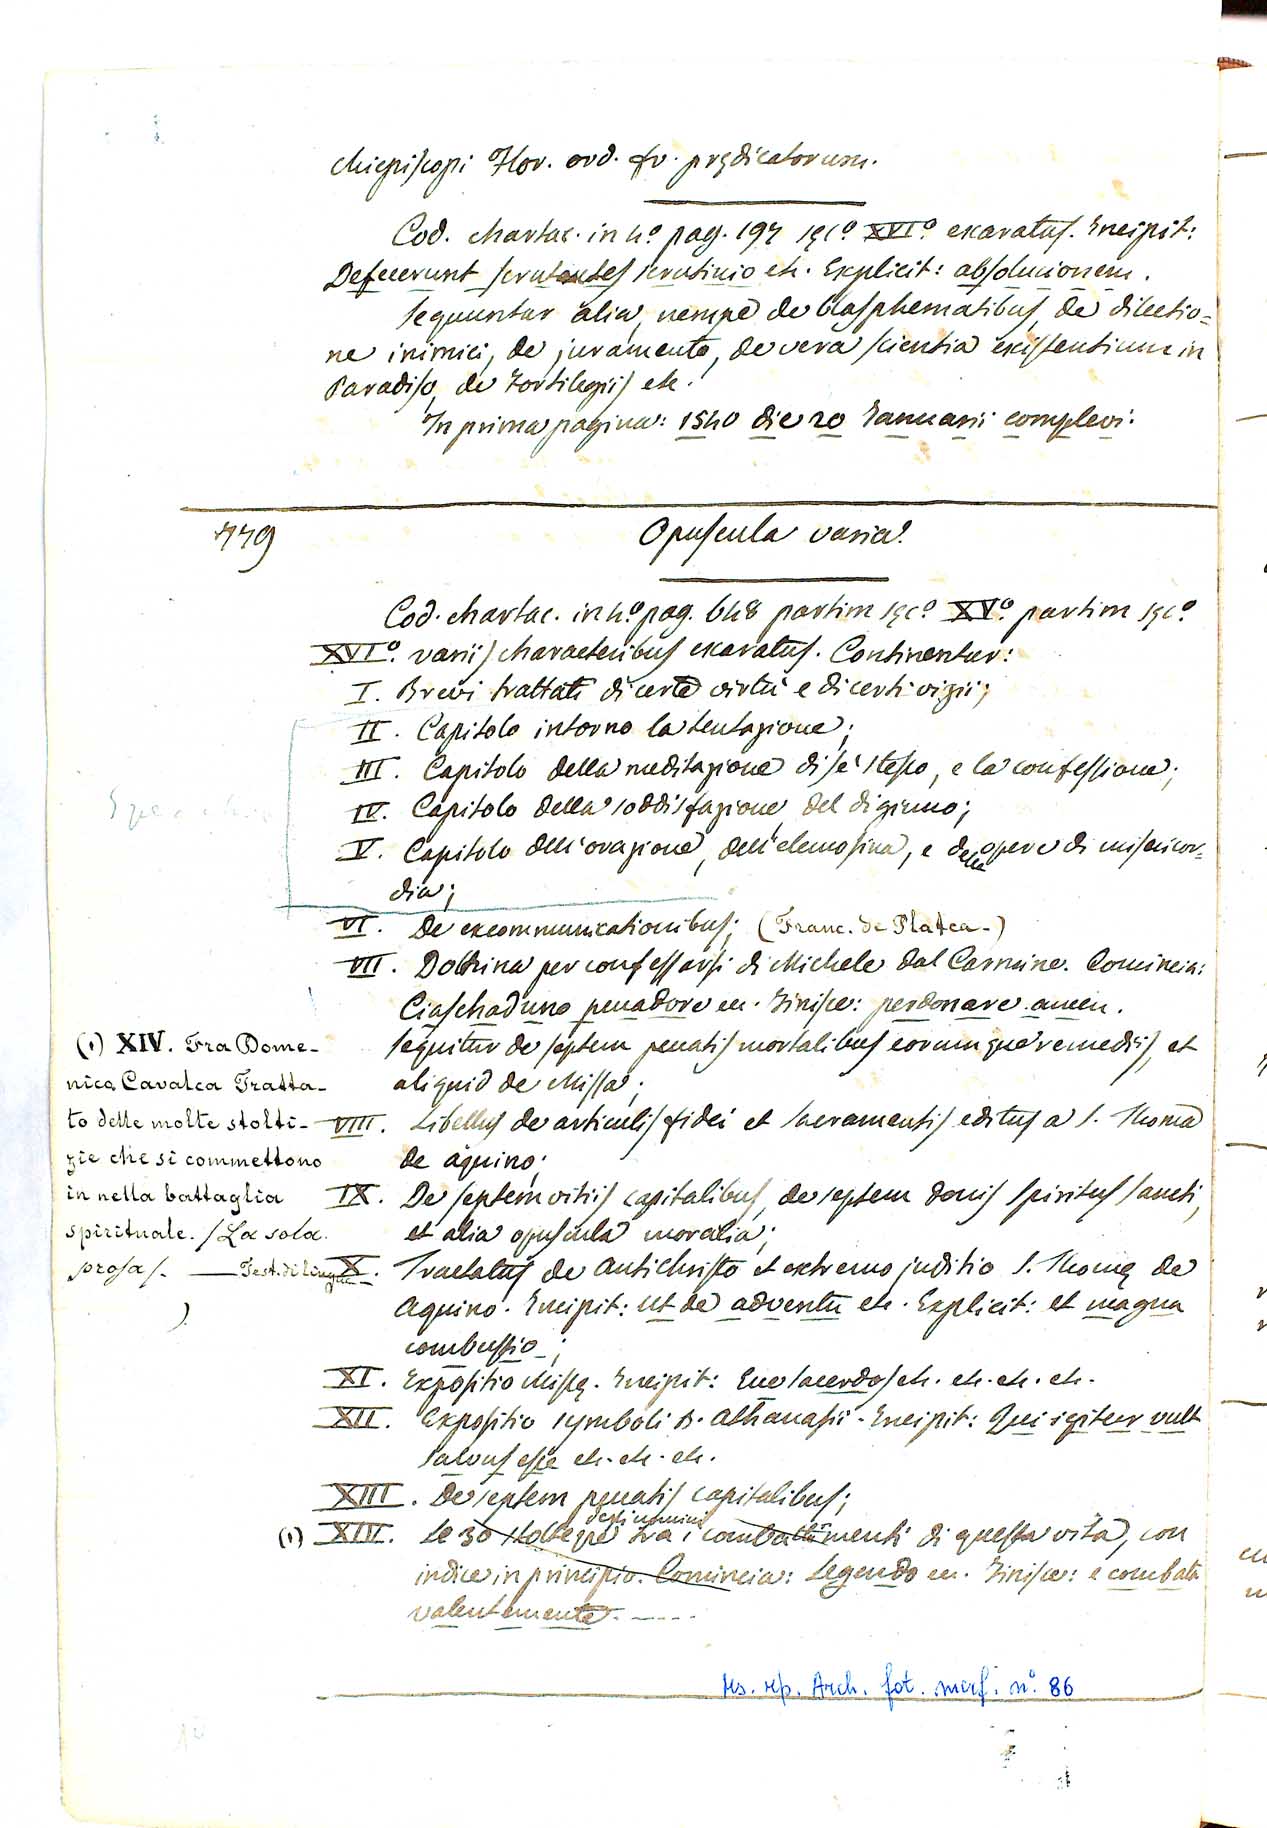 chiepiscopi Flor. ord. fr. prędicatorum.
Cod. chartac. in 4º pag. 197 sęcº XVIº exaratus. Incipit:
Defecerunt scrutantes scrutinio etc. Explicit: absolucionem.
Sequuntur alia, nempe de blasphematibus, de dilectio=
ne inimici, de juramento, de vera scientia existentium in
Paradiso, de Sortilegiis etc.
In prima pagina: 1540 die 20 Januarii complevi.
779
Opuscula varia.
Cod. chartac. in 4º pag. 648 partim sęcº XVº partim sęcº
XVIº. variis characteribus exaratus. Continentur:
I. Brevi trattati di certe virtù e di certi vizii;
II. Capitolo intorno la tentazione;
III. Capitolo della meditazione di sè stesso, e la confessione;
IV. Capitolo della soddisfazione, del digiuno;
V. Capitolo dell'orazione, dell'elemosina, e delle opere di misericor=
dia;
VI. De excommunicationibus; (Franc. de Platea.)
VII. Dottrina per confessarsi di Michele dal Carmine. Comincia:
Ciaschaduno peccadore ec. Finisce: perdonare amen.
Sequitur de septem peccatis mortalibus eorumque remediis, et
aliquid de Missa;
VIII. Libellus de articulis fidei et sacramentis editus a S. Thoma
de Aquino;
IX. De septem vitiis capitalibus, de septem donis Spiritus Sancti,
et alia opuscula moralia;
X. Tractatus de Antichristo et extremo juditio S. Thomę de
Aquino. Incipit: Ut de adventu etc. Explicit: et magna
combustio;
XI. Expositio Missę. Incipit: Ecce sacerdos etc. etc. etc. etc.
XII. Expositio symboli B. Athanasii. Incipit: Qui igitur vult
salvus esse etc. etc. etc.
XIII. De septem peccatis capitalibus;
degli uomini
(1) XIV. Le 30 stoltezze tra i combattimenti di questa vita, con
indice in principio. Comincia: Legendo ec. Finisce: e combati
valentemente.
(1) XIV. Fra Dome-
nico Cavalca Tratta-
to delle molte stolti-
zie che si commettono
in nella battaglia
spirituale. (La sola
prosa). — Test. di lingua
)
Ms. rip. Arch. fot. micf. nº 86